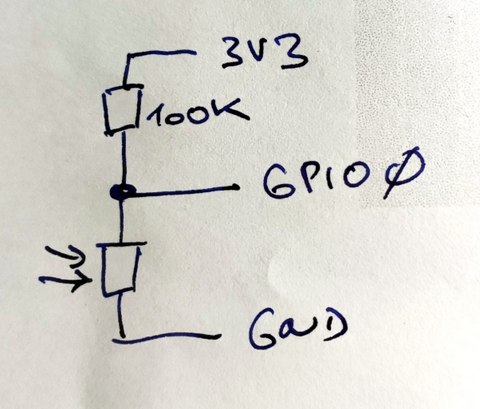 3V3
100K
GPIO0
GND